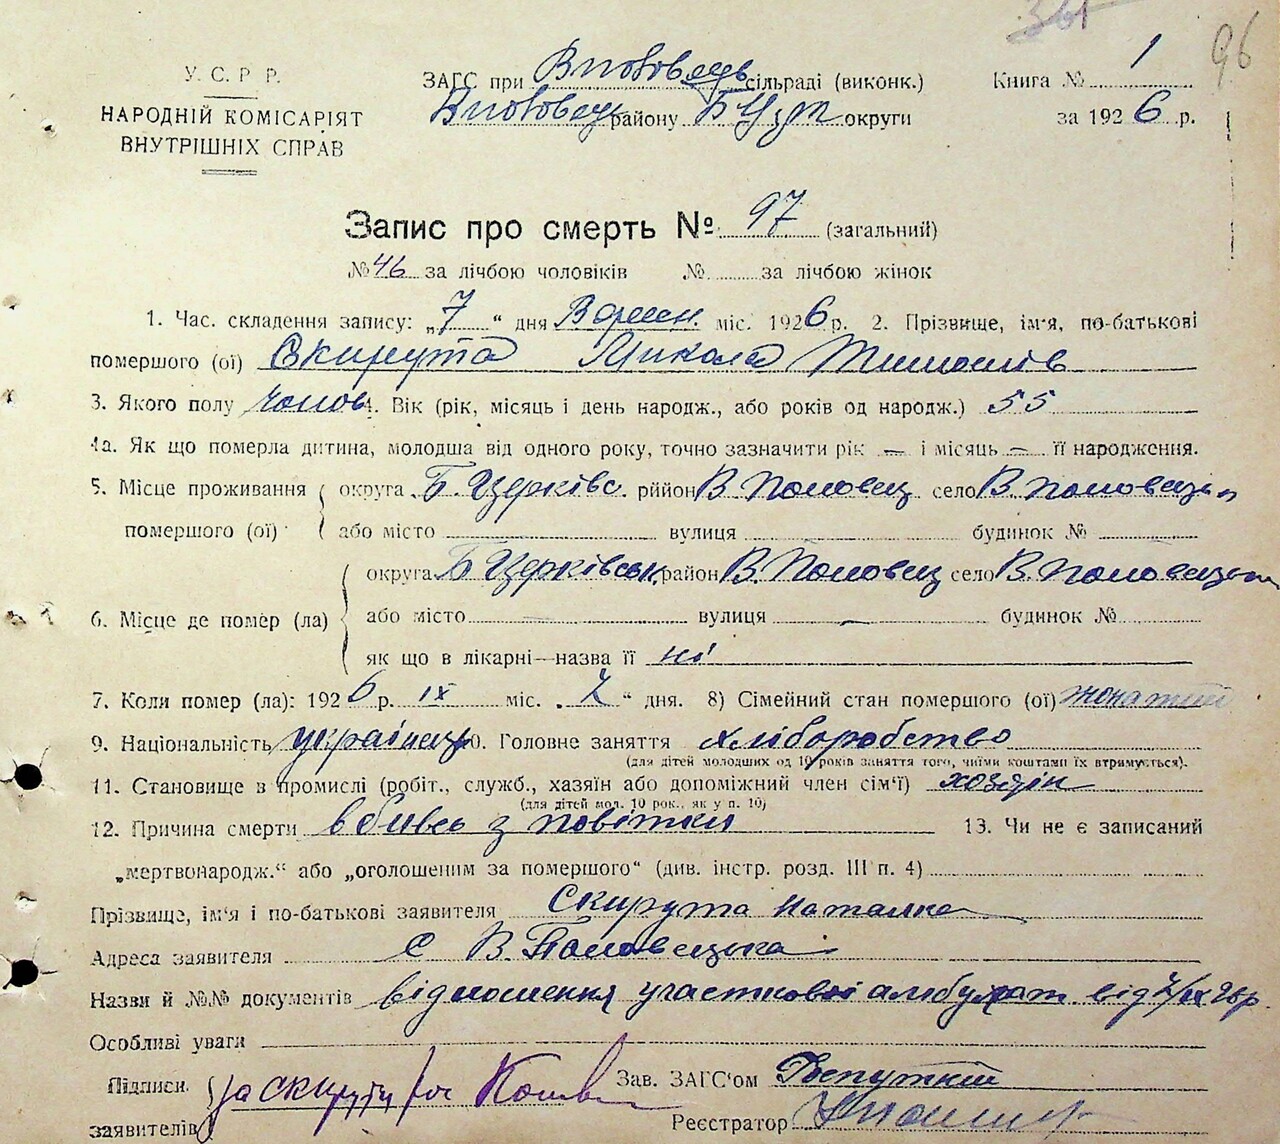 96
У. С. Р. Р.
НАРОДНІЙ КОМІСАРІЯТ
ВНУТРІШНІХ СПРАВ
ЗАГС при Вполовець сільраді (виконк.)
Вполовец району БЦерк округи
Книга № 1
за 1926 р.
Запис про смерть № 97 (загальний)
№ 46 за лічбою чоловіків № за лічбою жінок
1. Час. складення запису: „7“ дня Вересн. міс. 1926 р. 2. Прізвище, ім'я, по-батькові
помершого (ої) Скирута Микола Тимошів
3. Якого полу чолов 4. Вік (рік, місяць і день народж., або років од народж.) 55
4а. Як що померла дитина, молодша від одного року, точно зазначити рік — і місяць — її народження.
5. Місце проживання помершого (ої) округа Б. Церківс. рійон В Половец село В. Половецьк
або місто вулиця будинок №
6. Місце де помер (ла) округа Б Церківськ. район В. Половец село В. Половецьк
або місто — вулиця — будинок №
як що в лікарні—назва її ні
7. Коли помер (ла): 1926 р. IX міс. „7“ дня. 8) Сімейний стан помершого (ої) жонатий
9. Національність українець 10. Головне заняття хліборобство
(для дітей молодших од 10 років заняття того, чиїми коштами їх втримується).
11. Становище в промислі (робіт., служб., хазяїн або допоміжний член сім'ї) хозяін
(для дітей мол. 10 рок., як у п. 10)
12. Причина смерти вбивсь з повітки 13. Чи не є записаний
„мертвонародж.“ або „оголошеним за помершого“ (див. інстр. розд. III п. 4)
Прізвище, ім'я і по-батькові заявителя Скирута Наталка
Адреса заявителя с В. Половецька
Назви й №№ документів відношення участкової амбулат від 7/IX 26 р.
Особливі уваги
Підписи заявителів за Скируту
Зав. ЗАГС'ом
Реєстратор